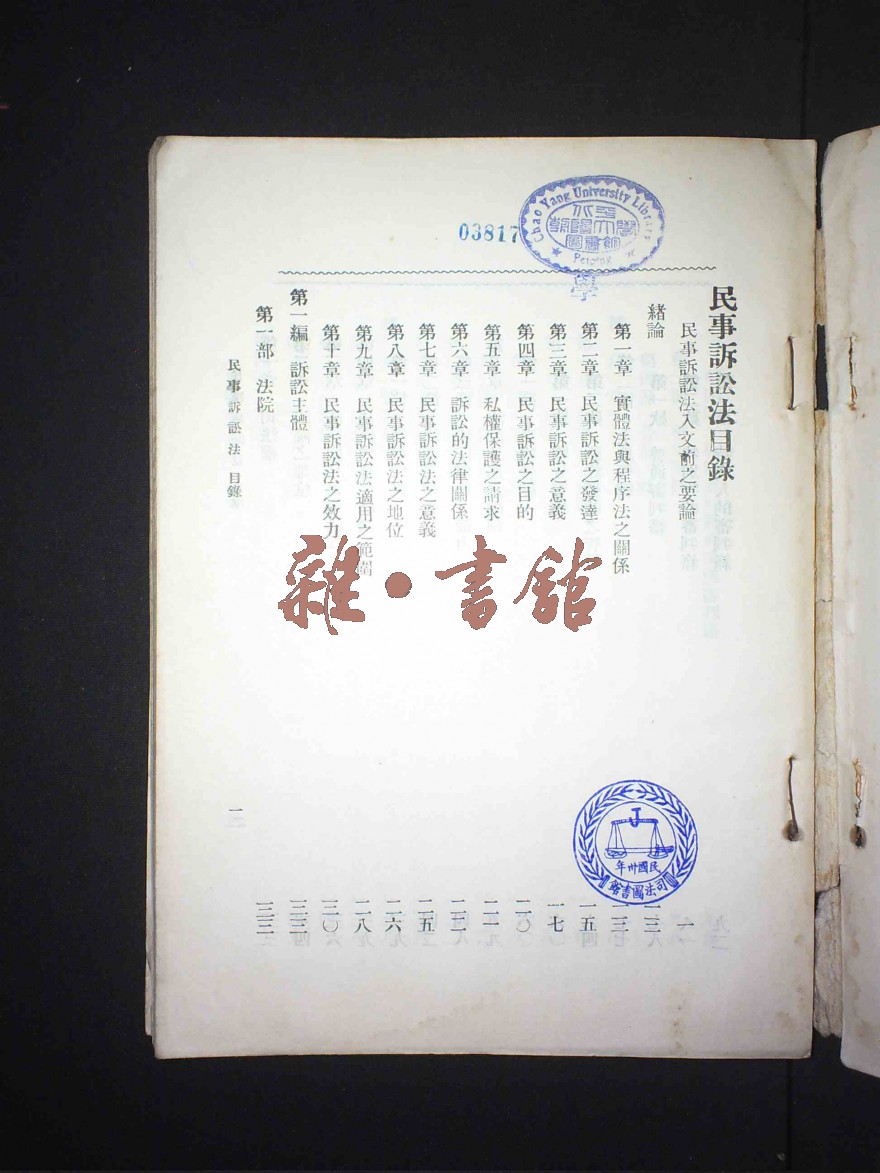 03817
Chao Yang University Library
Peiping
學
民事訴訟法目錄
民事訴訟法入文前之要論 一
緒論 一三
第一章 實體法與程序法之關係 一三
第二章 民事訴訟之發達 一五
第三章 民事訴訟之意義 一七
第四章 民事訴訟之目的 二〇
第五章 私權保護之請求 二一
第六章 訴訟的法律關係 二二
第七章 民事訴訟法之意義 二五
第八章 民事訴訟法之地位 二六
第九章 民事訴訟法適用之範圍 二八
第十章 民事訴訟法之效力 三〇
第一編 訴訟主體 三三
第一部 法院 三三
民事訴訟法 目錄
一
雜·書館
民國卅年
司法圖書館